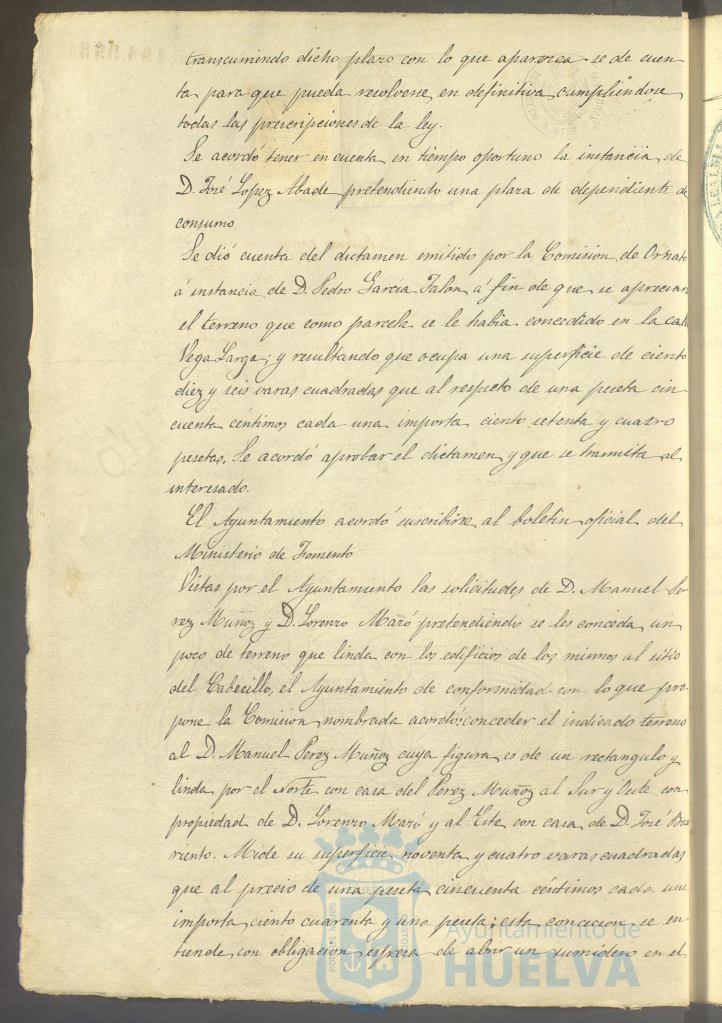 transcurriendo dicho plazo con lo que aparezca se de cuen
ta para que pueda resolverse en definitiva cumpliendose
todas las prescripciones de la ley.
Se acordó tener en cuenta en tiempo oportuno la instancia de
D. José Lopez Abade pretendiendo una plaza de dependiente de
consumo
Se dió cuenta del dictamen emitido por la Comision de Ornato
á instancia de D. Pedro Garcia Falon á fin de que se apreciara
el terreno que como parcela se le habia concedido en la calle
Vega Larga; y resultando que ocupa una superficie de ciento
diez y seis varas cuadradas que al respecto de una peseta cin
cuenta céntimos cada una importa ciento setenta y cuatro
pesetas. Se acordó aprobar el dictamen y que se tramita al
interesado.
El Ayuntamiento acordó suscribirse al boletin oficial del
Ministerio de Fomento
Vistas por el Ayuntamiento las solicitudes de D. Manuel Pe
rez Muñoz y D. Lorenzo Mazó pretendiendo se les conceda un
poco de terreno que linda con los edificios de los mismos al sitio
del Cabecillo, el Ayuntamiento de conformidad con lo que pro
pone la Comision nombrada acordó: conceder el indicado terreno
al D. Manuel Perez Muñoz cuya figura es de un rectangulo y
linda por el Norte con casa del Perez Muñoz al Sur y Oeste con
propiedad de D. Lorenzo Mazó y al Este con casa de D. José Ba
rriento. Mide su superficie noventa y cuatro varas cuadradas
que al precio de una peseta cincuenta céntimos cada una
importa ciento cuarenta y una peseta; esta concecion se en
tiende con obligacion espresa de abrir un sumidero en el
Ayuntamiento de
HUELVA